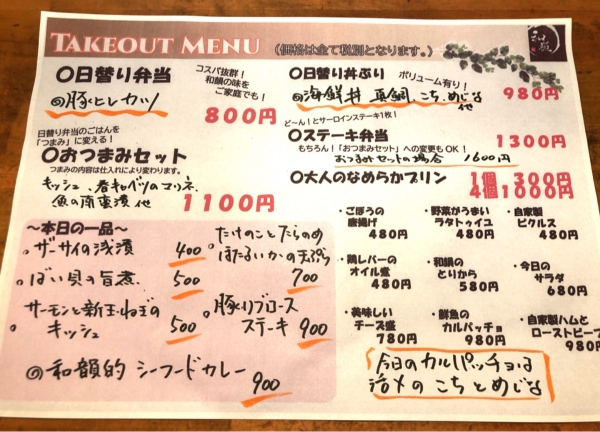 TAKEOUT MENU
（価格は全て税別となります。）
〇日替り弁当
コスパ抜群！
和韻の味を
ご家庭でも！
◎豚ヒレカツ
800円
〇日替り丼ぶり
ボリューム有り！
◎海鮮丼 真鯛、こち、めじな
他
980円
日替り弁当のごはんを
「つまみ」に変える！
〇おつまみセット
つまみの内容は仕入れにより変わります。
キッシュ、春キャベツのマリネ
魚の南蛮漬 他
1100円
ど〜ん！とサーロインステーキ1枚！
〇ステーキ弁当
1300円
もちろん！「おつまみセット」への変更もOK！
おつまみセットの場合 1600円
〇大人のなめらかプリン
1個 300円
4個1000円
〜本日の一品〜
。ザーサイの浅漬
400
。ばい貝の旨煮
500
。サーモンと新玉ねぎの
キッシュ
500
。たけのことたらのめ
ほたるいかの天ぷら
700
。豚とりブロース
ステーキ 900
◎和韻的 シーフドカレー
900
・ごぼうの
唐揚げ
480円
・野菜がうまい
ラタトゥイユ
480円
・自家製
ピクルス
480円
・鶏レバーの
オイル煮
480円
・和韻の
とりから
580円
・今日の
サラダ
680円
・美味しい
チーズ盛
780円
・鮮魚の
カルパッチョ
980円
・自家製ハムと
ローストビーフ
980円
今日のカルパッチョは
活〆の こちとめじな